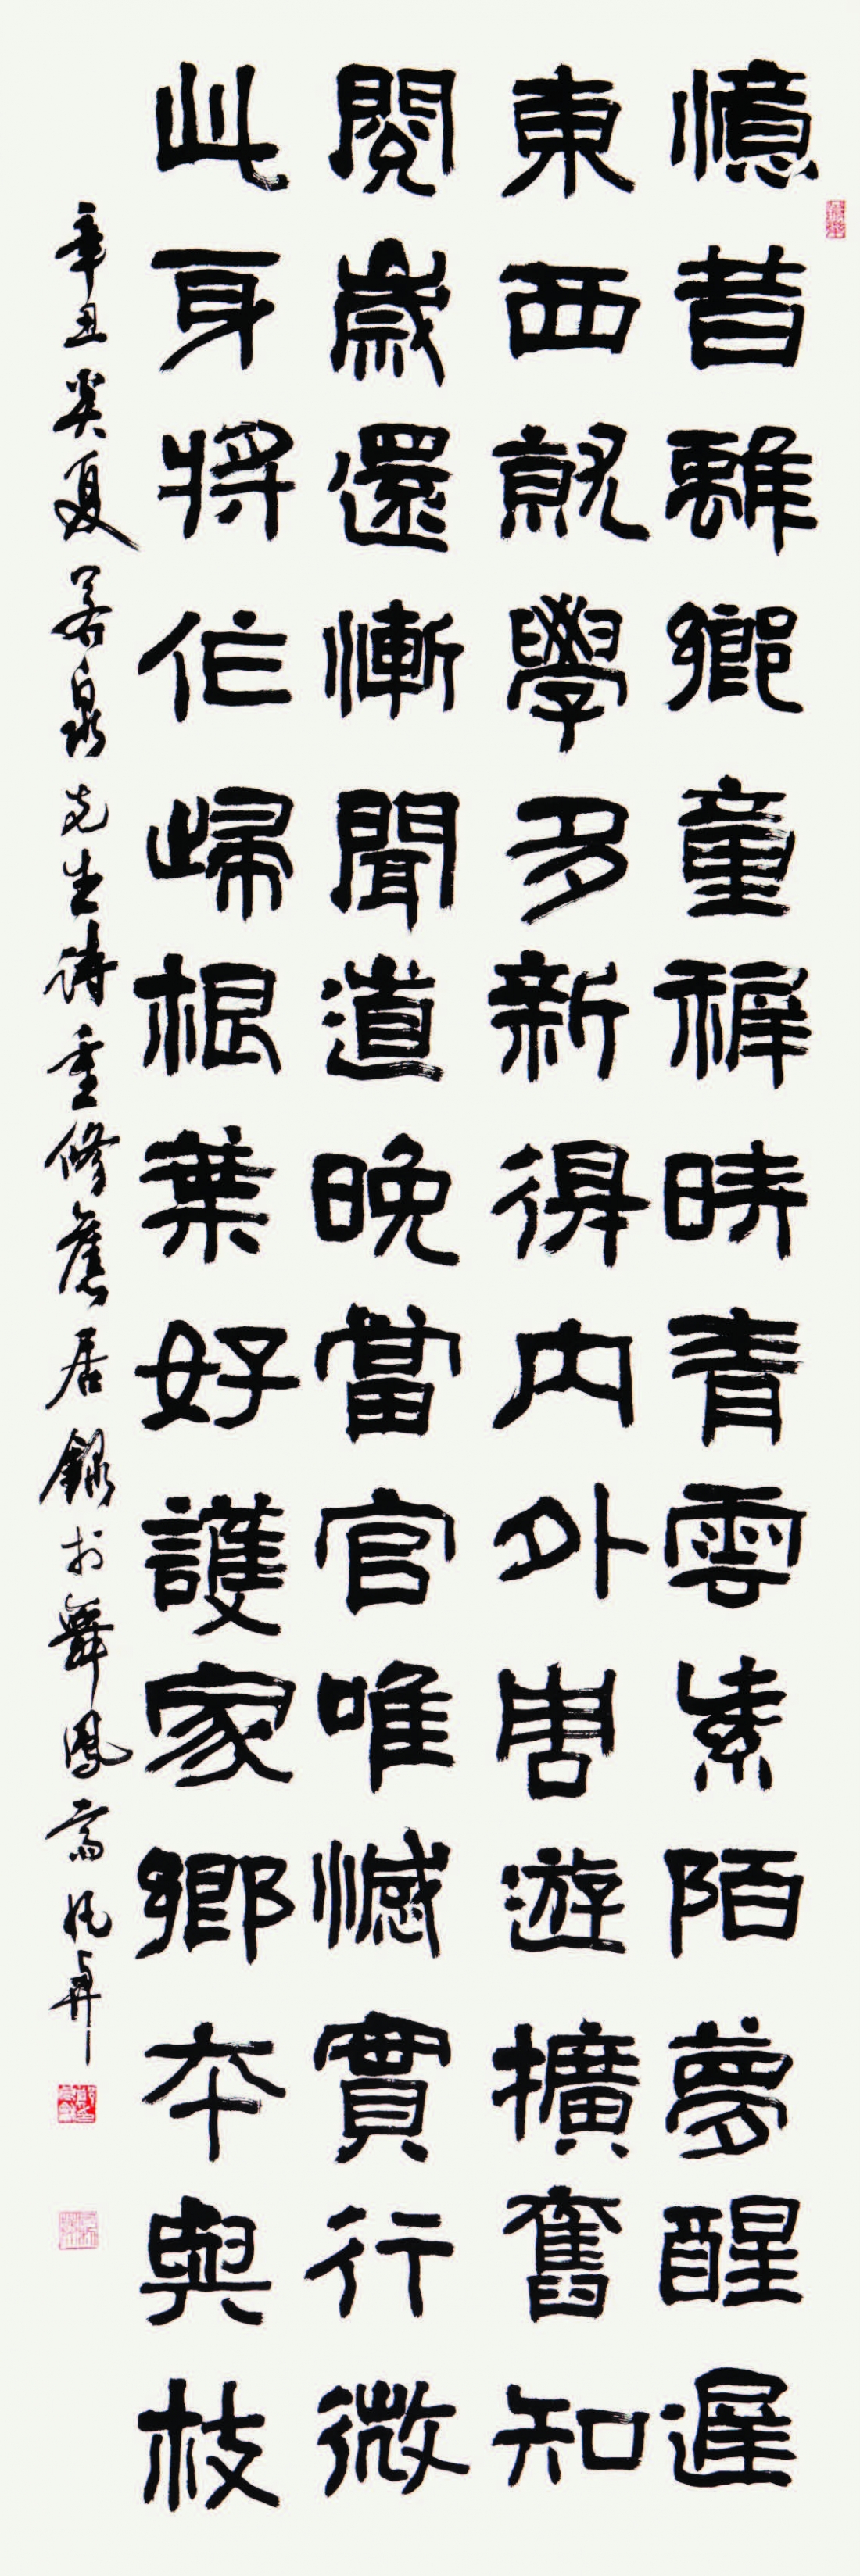 憶昔離鄉童稚時青雲紫陌夢醒遲
東西就學多新得内外周遊擴舊知
閱歲還慚聞道晚當官唯憾實行微
此身將作歸根葉好護家鄉本與枝
辛丑癸夏若泉先生詩重修舊居錄於舞鳳齋